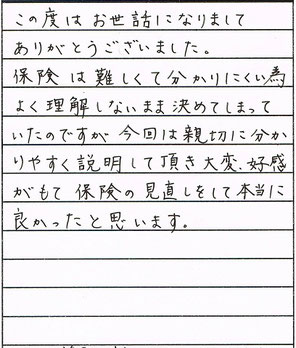 この度はお世話になりまして
ありがとうございました。
保険は難しくて分かりにくい為
よく理解しないまま決めてしまって
いたのですが、今回は親切に分か
りやすく説明して頂き大変、好感
がもて保険の見直しをして本当に
良かったと思います。